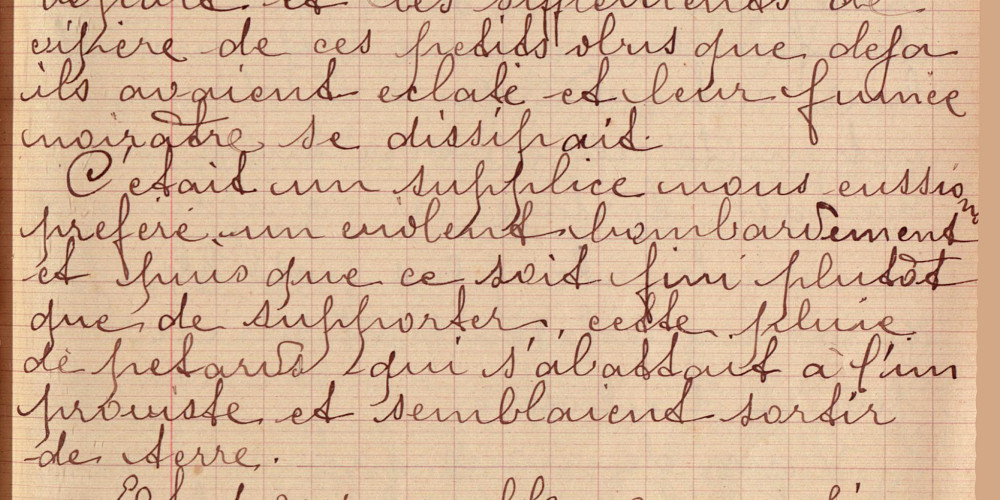 et les sifflements de
vipère de ces petits obus que deja
ils avaient eclaté et leur fumée
noirâtre se dissipait.
C'etait un supplice nous eussions
preferé un violent bombardement
et puis que ce soit fini plutôt
que de supporter, cette pluie
de petards qui s'abattait à l'im
proviste et semblaient sortir
de terre.